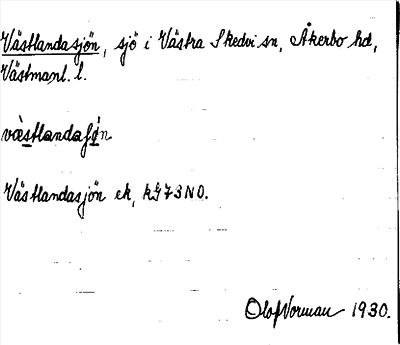 Västlandasjön, sjö i Västra Skedvi sn, Åkerbo hd,
Västmanl. l.
væstlandaʃøn
Västlandasjön ek, 73 NO.
Olof Norman 1930.